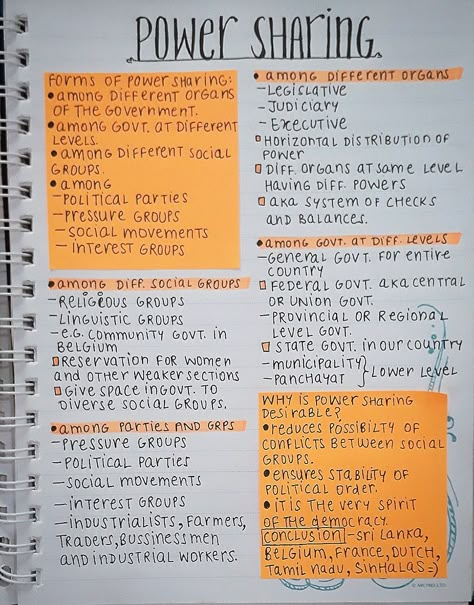 POWER SHARING
FORMS OF POWER SHARING:
• AMONG DIFFERENT ORGANS
OF THE GOVERNMENT.
• AMONG GOVT. AT DIFFERENT
LEVELS.
• AMONG DIFFERENT SOCIAL
GROUPS.
• AMONG
- POLITICAL PARTIES
- PRESSURE GROUPS
- SOCIAL MOVEMENTS
- INTEREST GROUPS
• AMONG DIFF. SOCIAL GROUPS
- RELIGIOUS GROUPS
- LINGUISTIC GROUPS
- e.g. COMMUNITY GOVT. IN
BELGIUM
RESERVATION FOR WOMEN
AND OTHER WEAKER SECTIONS
GIVE SPACE IN GOVT. TO
DIVERSE SOCIAL GROUPS.
• AMONG PARTIES AND GRPS
- PRESSURE GROUPS
- POLITICAL PARTIES
- SOCIAL MOVEMENTS
- INTEREST GROUPS
- INDUSTRIALISTS, FARMERS,
TRADERS, BUSSINESSMEN
AND INDUSTRIAL WORKERS.
• AMONG DIFFERENT ORGANS
- LEGISLATIVE
- JUDICIARY
- EXECUTIVE
HORIZONTAL DISTRIBUTION OF
POWER
DIFF. ORGANS AT SAME LEVEL
HAVING DIFF. POWERS
aka SYSTEM OF CHECKS
AND BALANCES.
• AMONG GOVT. AT DIFF. LEVELS
- GENERAL GOVT. FOR ENTIRE
COUNTRY
FEDERAL GOVT. aka CENTRAL
OR UNION GOVT.
- PROVINCIAL OR REGIONAL
LEVEL GOVT.
STATE GOVT. IN OUR COUNTRY
- MUNICIPALITY
- PANCHAYAT } LOWER LEVEL
WHY IS POWER SHARING
DESIRABLE?
• REDUCES POSSIBILTY OF
CONFLICTS BETWEEN SOCIAL
GROUPS.
• ENSURES STABILITY OF
POLITICAL ORDER.
• IT IS THE VERY SPIRIT
OF THE DEMOCRACY.
CONCLUSION - SRI LANKA,
BELGIUM, FRANCE, DUTCH,
TAMIL NADU, SINHALAS =)